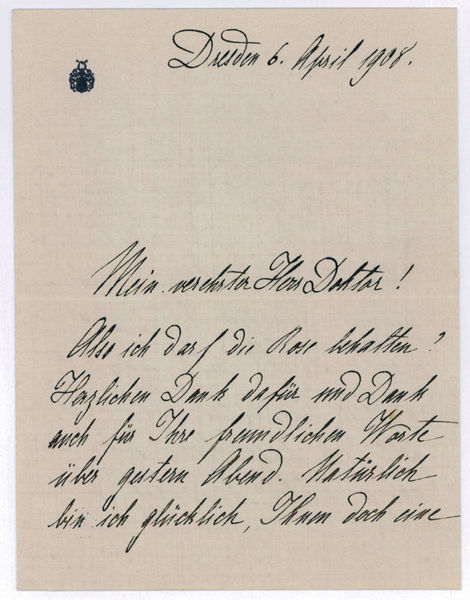 Dresden 6. April 1908.
Mein verehrter Herr Doktor!
Also ich darf die Rose behalten?
Herzlichen Dank dafür und Dank
auch für Ihre freundlichen Worte
über gestern Abend. Natürlich
bin ich glücklich, Ihnen doch eine